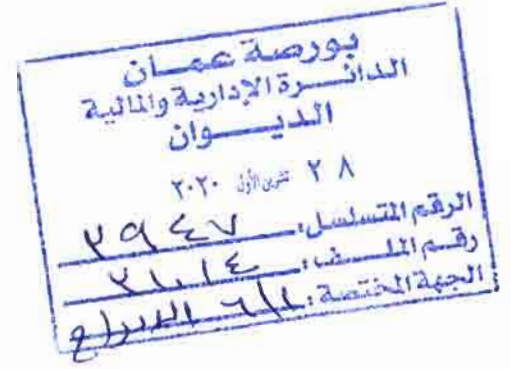 بورصة عمان
الدائرة الإدارية والمالية
الديوان
٢٨ تشرين الأول ٢٠٢٠
الرقم المتسلسل: ٣٩٤٧
رقم الملف: ٣١٢١٤
الجهة المختصة: الإدراج